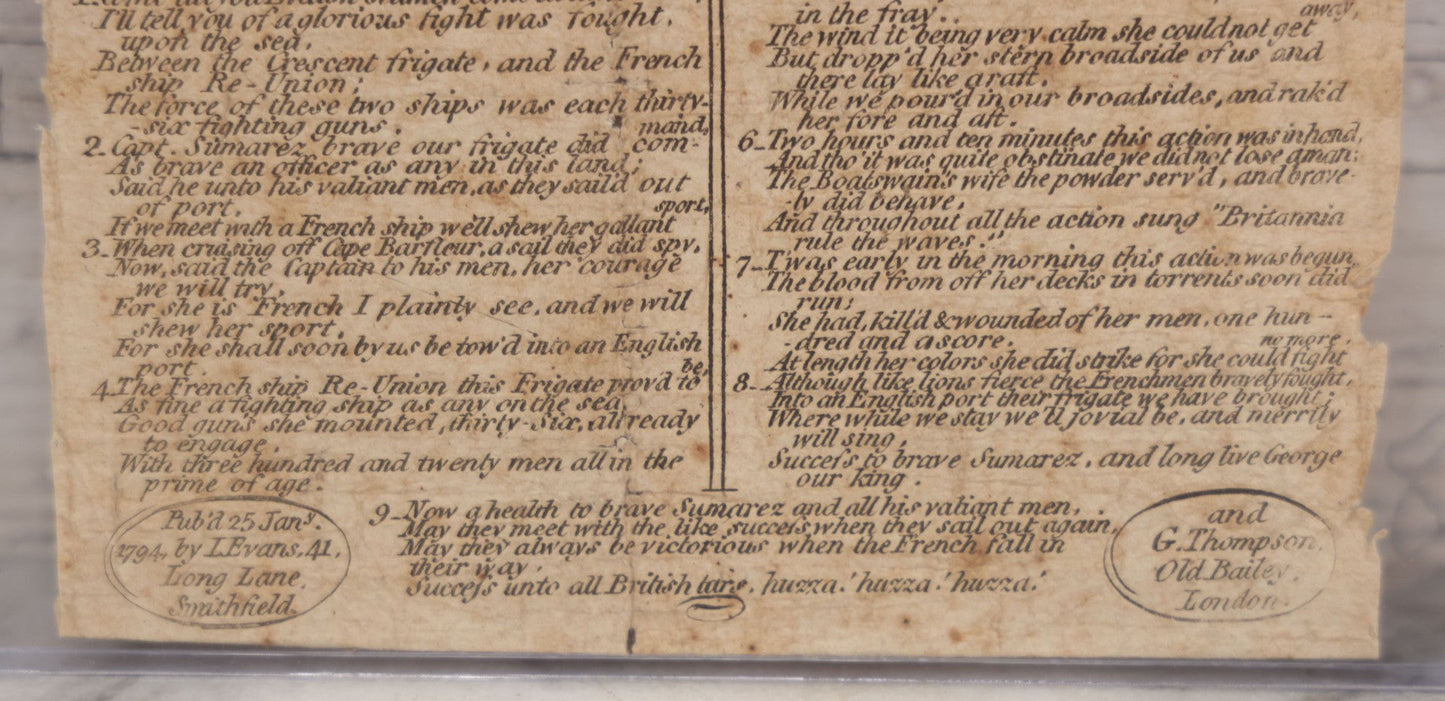 I'll tell you of a glorious fight was fought,
upon the sea.
Between the Crescent frigate, and the French
ship Re-Union;
The force of these two ships was each thirty-
-six fighting guns.
mand,
2- Capt. Sumarez brave our frigate did com-
As brave an officer as any in this land;
Said he unto his valiant men, as they sail'd out
of port.
sport,
If we meet with a French ship we'll shew her gallant
3- When cruising off Cape Barfleur, a sail they did spy,
Now, said the Captain to his men, her courage
we will try,
For she is French I plainly see, and we will
shew her sport,
For she shall soon by us be tow'd into an English
port.
be,
4- The French ship Re-Union this Frigate prov'd to
As fine a fighting ship as any on the sea
Good guns she mounted, thirty-six, all ready
to engage,
With three hundred and twenty men all in the
prime of age.
in the fray..
away,
The wind it being very calm she could not get
But dropp'd her stern broadside of us and
there lay like a raft.
While we pour'd in our broadsides, and rak'd
her fore and aft.
6- Two hours and ten minutes this action was in hand,
And tho' it was quite obstinate we did not lose a man;
The Boatswain's wife the powder serv'd, and brave-
-ly did behave,
And throughout all the action sung "Britannia
rule the waves."
7- Twas early in the morning this action was begun,
The blood from off her decks in torrents soon did
run;
She had, kill'd & wounded of her men, one hun-
-dred and a score.
no more,
At length her colors she did strike for she could fight
8- Although like lions fierce the Frenchmen bravely fought,
Into an English port their frigate we have brought;
Where while we stay we'll jovial be, and merrily
will sing,
Succeſs to brave Sumarez, and long live George
our king.
9- Now a health to brave Sumarez and all his valiant men,
May they meet with the like succeſs when they sail out again,
May they always be victorious when the French fall in
their way,
Succeſs unto all British tars, huzza! huzza! huzza!
Pub'd 25 Jany.
1794, by I. Evans, 41,
Long Lane,
Smithfield.
and
G. Thompson,
Old Bailey,
London.